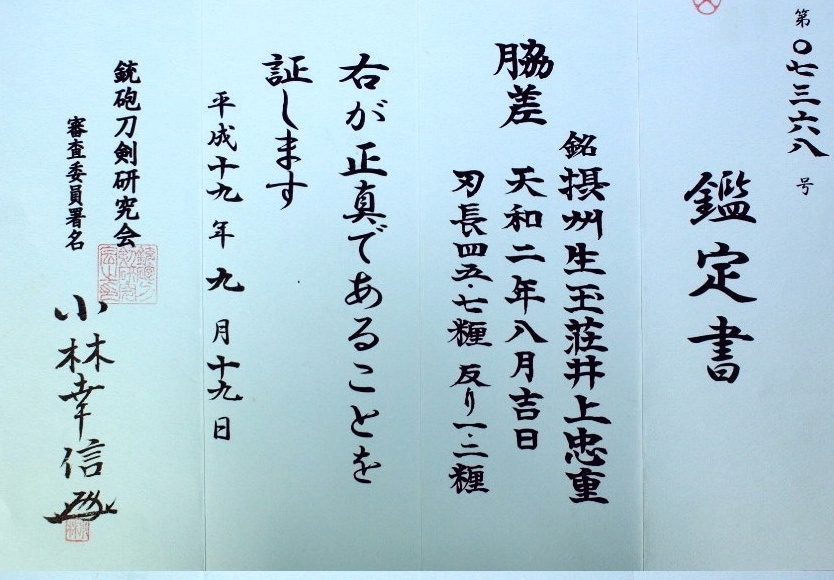 第〇七三六八号
鑑定書
脇差
銘 摂州生玉荘井上忠重
天和二年八月吉日
刃長四五・七糎 反り一・二糎
右が正真であることを
証します
平成十九年九月十九日
銃砲刀剣研究会
審査委員署名
小林幸信